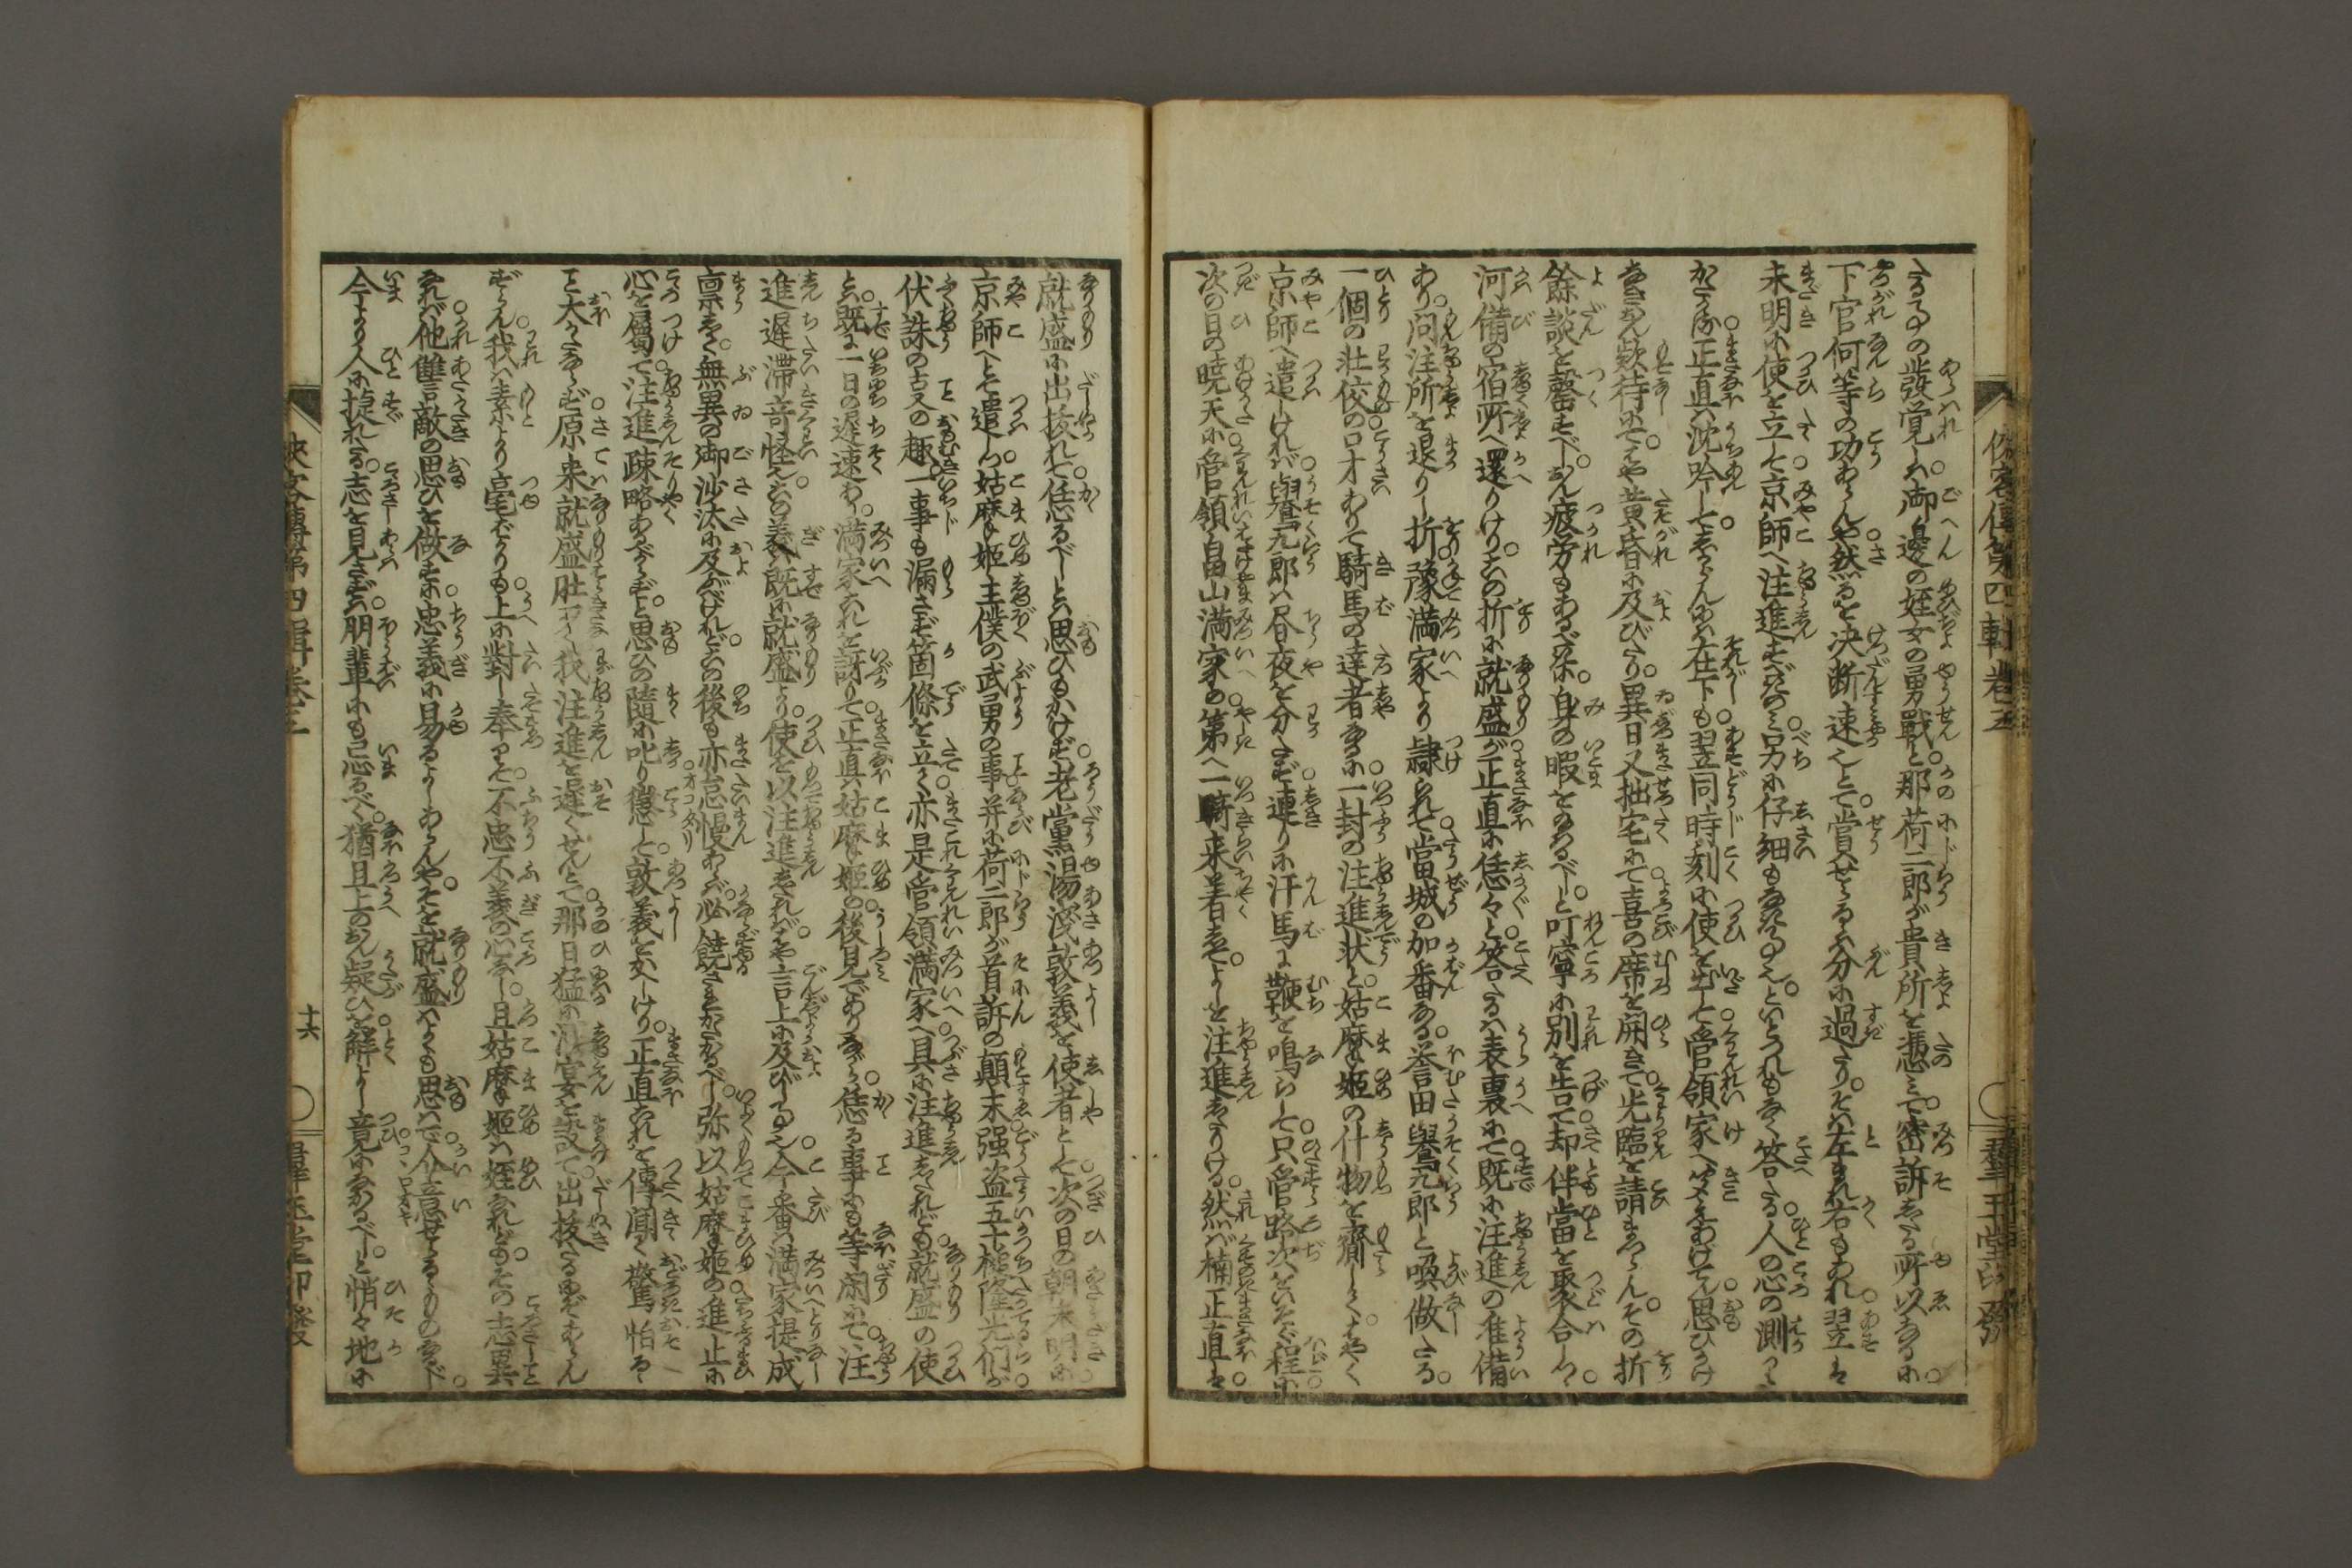 侠客傳第四輯巻五
たる事の發覚しは。御邊の姪女の勇戰と。那荷二郎が貴所を憑みて。密訴したる所以なるに。
下官何等の功あらんや。然るを决断速也とて。賞せらるゝは分に過たり。そは左まれ右もあれ。翌は
未明に使を立て。京師へ注進すべきのみ。只に仔細もなき事也。といとつれもなく答たる。人の心の測り
かたさに。正直は沈吟して。しからんには在下も。翌同時刻に使を出して。管領家へ聞えあげてん。思ひかけ
なき欵待にて。はや黄昏に及びたり。異日又拙宅にて。喜の席を開きて。光臨を請まつらん。その折
餘談を罄すべし。疲労もあるべきに。身の暇を給るべし。と叮寧に別を告て。却伴當を聚合しつゝ。
河備の宿所へ還りけり。この折に就盛が。正直に恁々と。答たるは表裏にて。既に注進の准備
あり。問注所を退りし折。豫満家より隷られて。當城の加番なる。誉田鷽九郎と喚做たる。
一個の壮佼の口才ありて。騎馬の達者なるに。一封の注進状と。姑摩姫の什物を齎しく。はやく
京師へ遣しければ。鷽九郎は昼夜を分たず。連りに汗馬に鞭を鳴らして。只管路次をいそぐ程に。
次の日の暁天に。管領畠山満家の。第へ一騎来着して。よしを注進したりける。然ば楠正直は。
就盛に出抜れて。恁るべしとは思ひもかけず。老黨湯浅敦義を使者として。次の日の朝未明に
京師へとて遣しつ。姑摩姫主僕の武勇の事。并に荷二郎が首訴の顛末。强盗五十槌隆光們が
伏誅の事の趣。一事も漏さず箇條を立て。亦是管領満家へ。具に注進したれども。就盛の使
とは。既に一日の遅速あり。満家これを訝りて。正直は姑摩姫の。後見でありながら。恁る事にも等閑にて。注
進遅滞奇怪也。この義は既に就盛より。使を以注進したれば。はや言上に及びし事也。今番は満家提成
禀して。無異の御沙汰に及べけれども。この後も亦怠慢あらば。必饒されがたかるべし。弥以姑摩姫の。進止に
心を屬て。注進疎略あるべからず。と思ひの隨に叱り懲して。敦義を返しけり。正直これを傳聞て。驚怕るゝ
こと大かたならず。原来就盛肚ぎたなく。我注進を遅くせんとて。那日猛に酒宴を設て。出抜たるにぞあらん
ずらん。我は素より毫ばかりも。上に對し奉りて。不忠不義の心なし。且姑摩姫は姪なれども。その志異
なれば。他讐敵の思ひを做すに。忠義に易るよしあらんや。そを就盛はよくも思はで。介意せらるゝものならば。
今より人に捉れたる。志を見さずは。朋輩にも忌るべく。猶且上のおん疑ひを。解よし竟になかるべし。と悄々地に
侠客傳第四輯巻五
十六
群玉堂印發